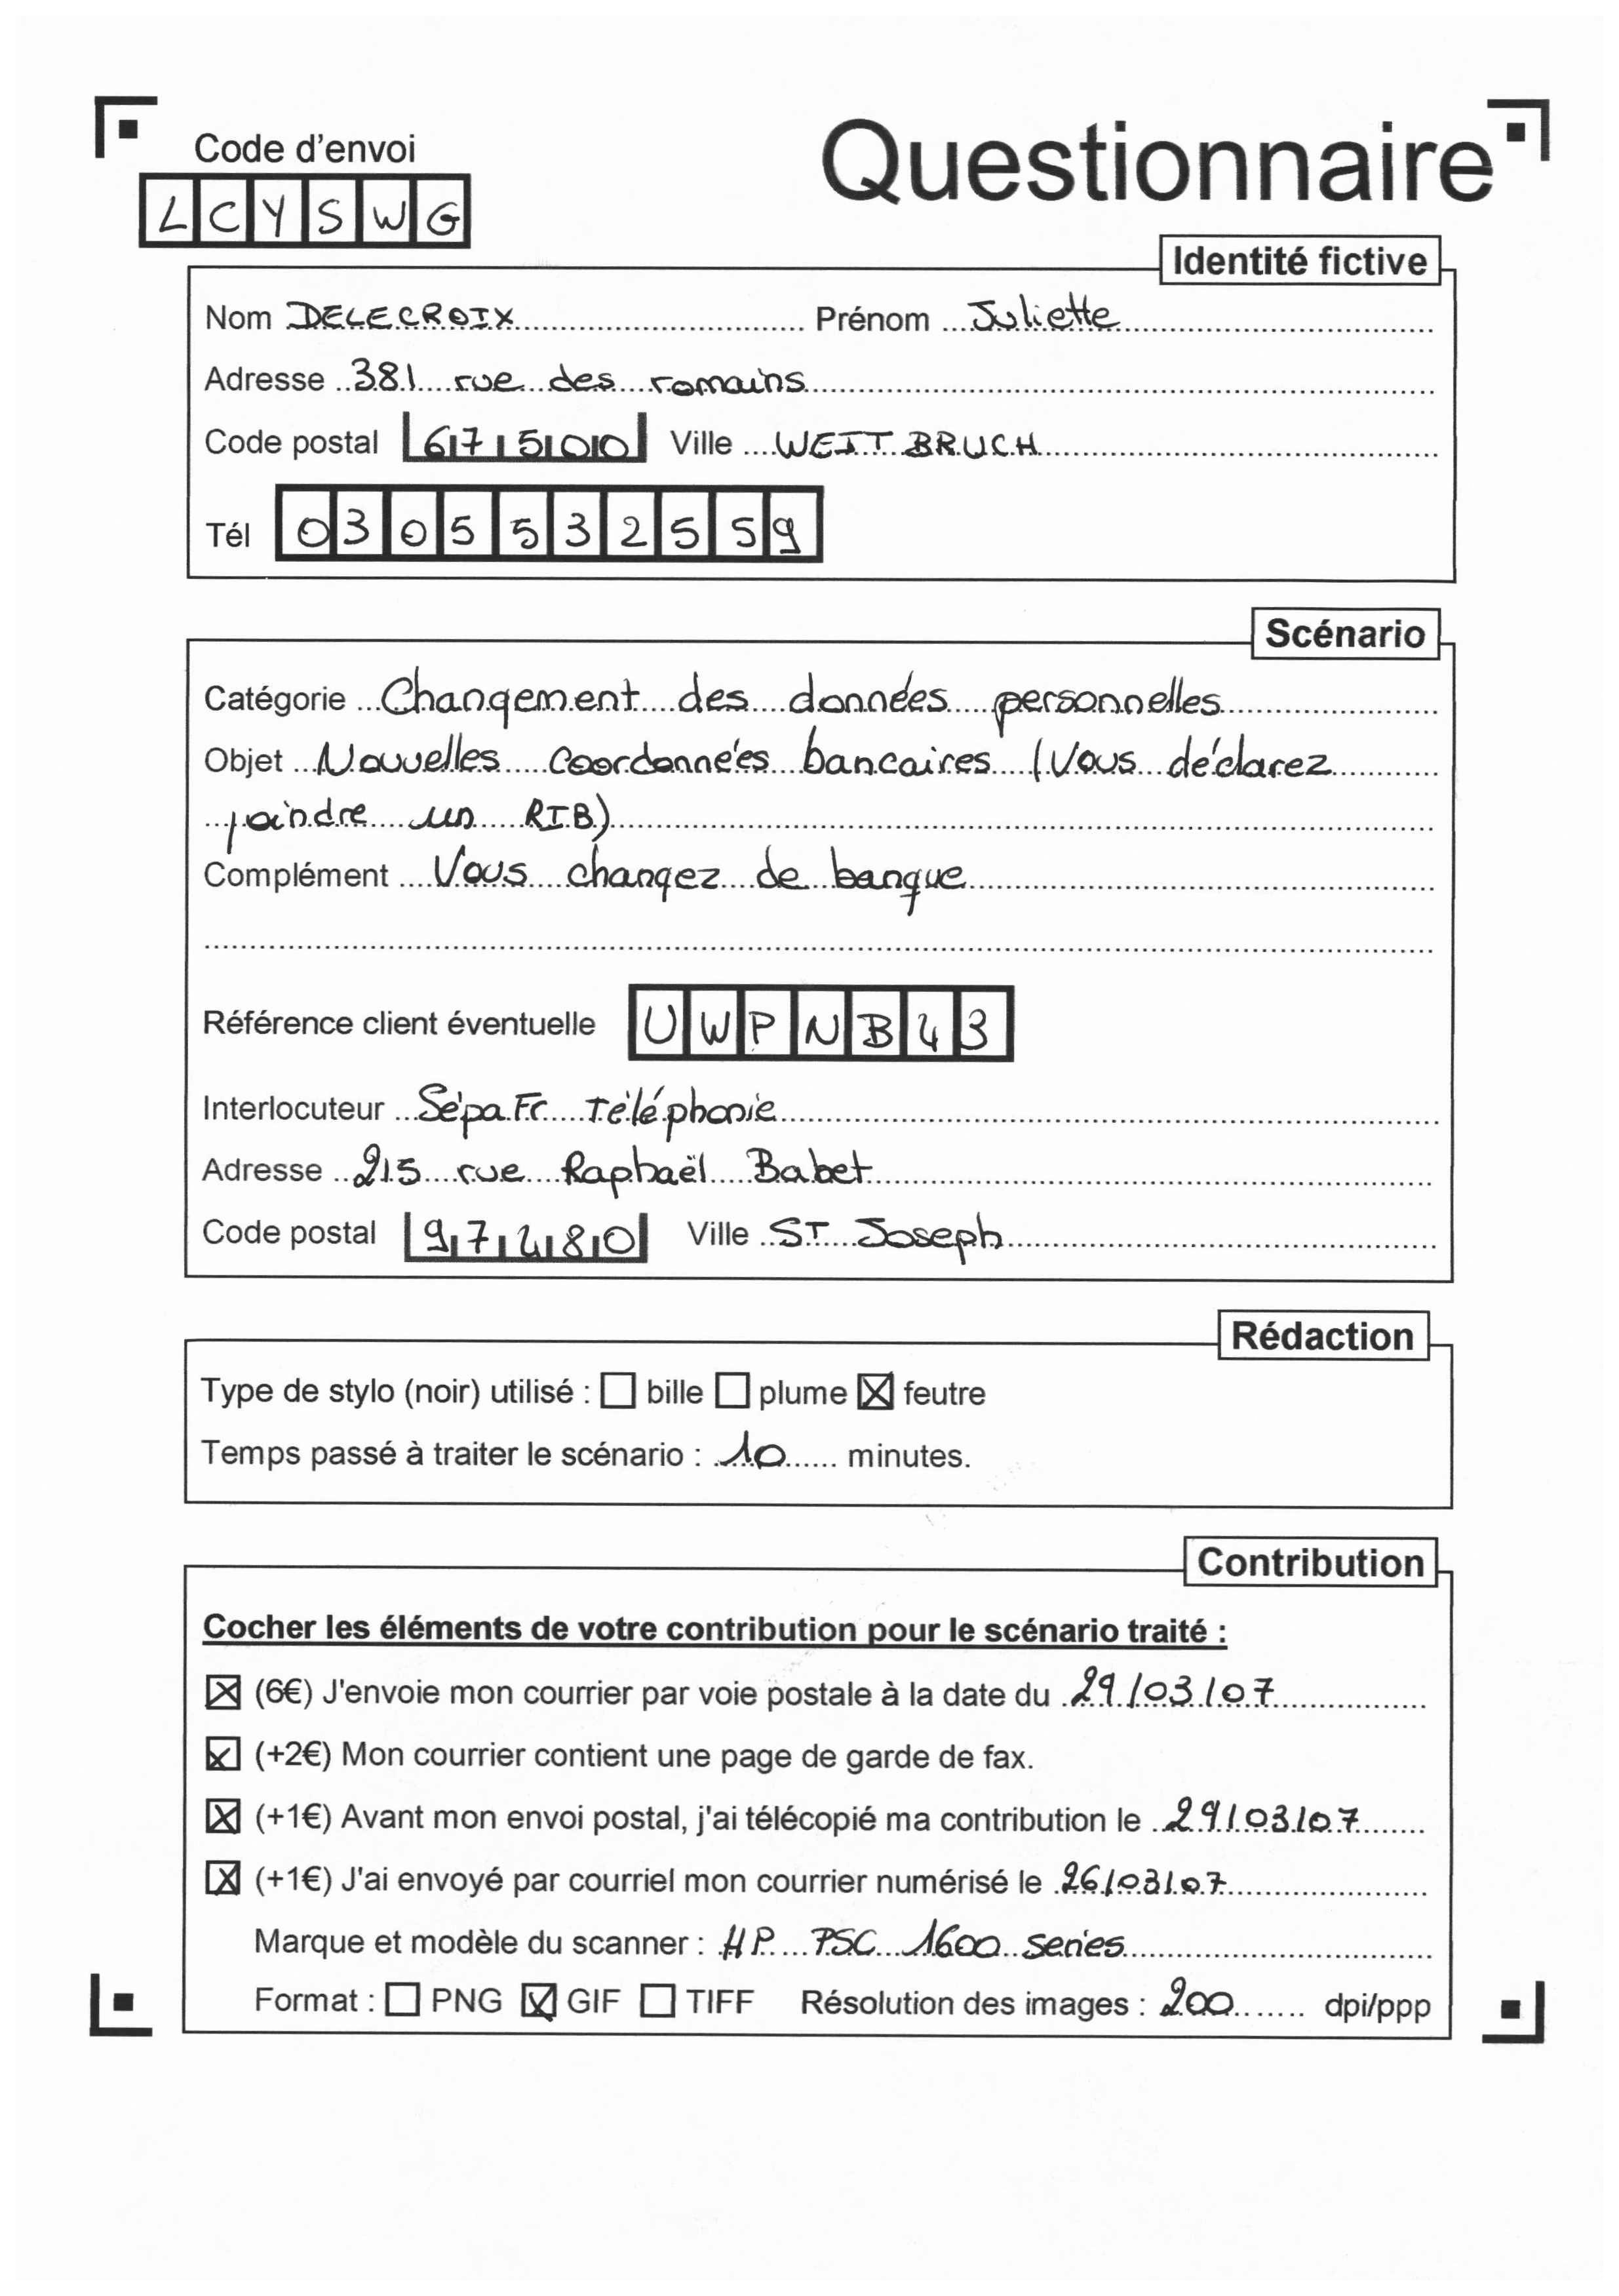 Code d'envoi
Questionnaire
LCYSWG
Identité fictive
Nom DELECROIX Prénom Juliette
Adresse 381 rue des romains
Code postal 67500 Ville WEITBRUCH
Tél 0305532559
Scénario
Catégorie Changement des données personnelles
Objet Nouvelles coordonnées bancaires (Vous déclarez
joindre un RIB)
Complément Vous changez de banque
Référence client éventuelle UWPNB43
Interlocuteur SépaFr Téléphonie
Adresse 215 rue Raphaël Babet
Code postal 97480 Ville ST Joseph
Rédaction
Type de stylo (noir) utilisé : ☐ bille ☐ plume ☒ feutre
Temps passé à traiter le scénario : 10 minutes.
Contribution
Cocher les éléments de votre contribution pour le scénario traité :
☒ (6€) J'envoie mon courrier par voie postale à la date du 29/03/07
☒ (+2€) Mon courrier contient une page de garde de fax.
☒ (+1€) Avant mon envoi postal, j'ai télécopié ma contribution le 29/03/07
☒ (+1€) J'ai envoyé par courriel mon courrier numérisé le 26/03/07
Marque et modèle du scanner : HP PSC 1600 series
Format : ☐ PNG ☒ GIF ☐ TIFF Résolution des images : 200 dpi/ppp